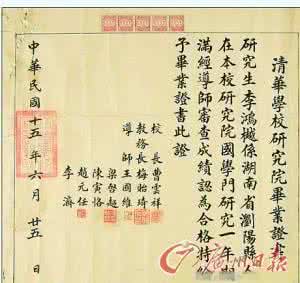 清華學校研究院畢業證書
研究生李鴻樾係湖南省瀏陽縣人
在本校研究院國學門研究一年期
滿經導師審查成績認為合格特給
予畢業證書此證
校長曹雲祥
教務長梅貽琦
導師王國維
梁啓超
陳寅恪
趙元任
李濟
中華民國十五年六月廿五日
廣州日報